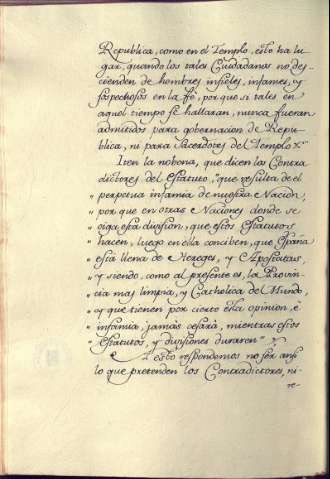 Republica, como en el Templo, esto ha lu-
gar, quando los tales Ciudadanos no des-
cienden de hombres infieles, infames, y
sospechosos en la fé, por que si tales en
aquel tiempo se hallaran, nunca fueran
admitidos para gobernacion de Repu-
blica, ni para Sacerdotes del Templo
Iten la nobona, que dicen los Contra
dictores del Estatuto, "que resulta de el
" perpetua infamia de nuestra Nacion,
" por que en otras Naciones donde se
" oiga esta division, que estos Estatutos
" hacen, luego en ella conciben, que España
" está llena de Hereges, y Apostatas,
" y siendo, como al presente es, la Provin-
" cia mas limpia, y Catholica de Mundo,
" y que tienen por cierto esta opinion, é
" infamia, jamas cesará, mientras estos
" Estatutos, y divisiones duraren"
A esto respondemos no ser ansi
lo que pretenden los Contradictores, ni
re-